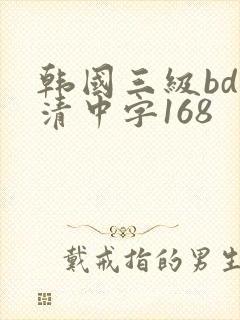 韩國三級bd
清中字168
戴戒指的男生